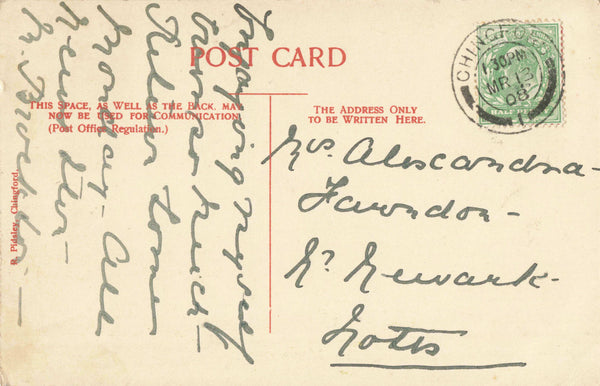 POST CARD
THIS SPACE, AS WELL AS THE BACK, MAY
NOW BE USED FOR COMMUNICATION.
(Post Office Regulation.)
THE ADDRESS ONLY
TO BE WRITTEN HERE.
CHINGFORD
1.30PM
MR 13
08
1
HALFPENNY
Enjoying myself
Return home
Monday – All
news then –
Mrs. Alexandra –
Farndon –
Nr. Newark –
Notts
R. Pidsley, Chingford.